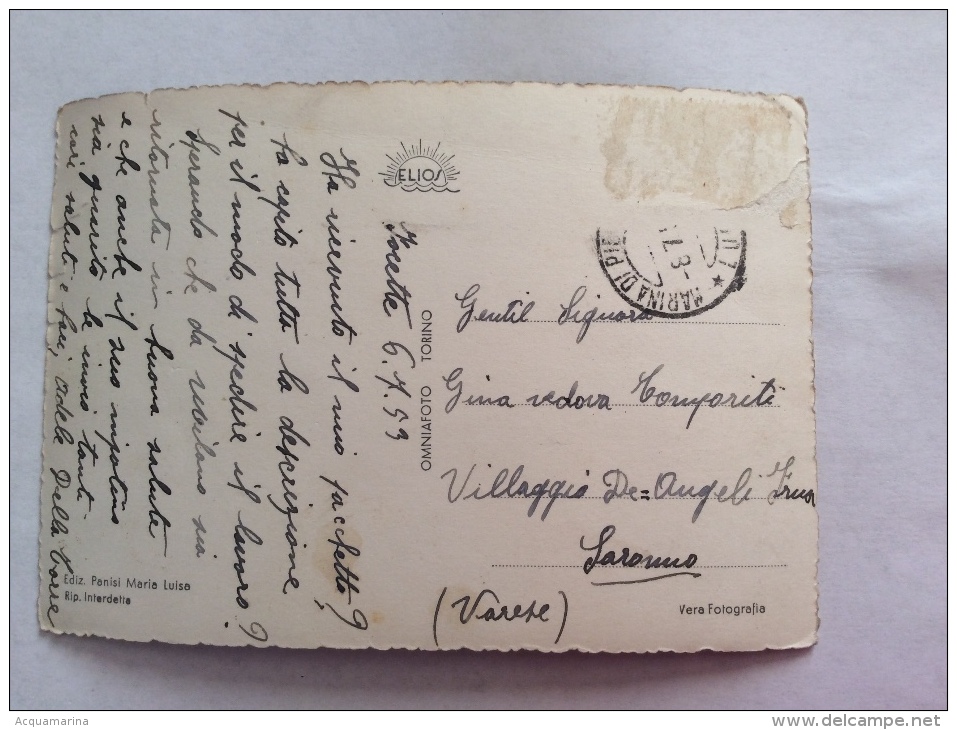 ELIOS
Focette 6.7.53
Ha ricevuto il mio pacchetto?
ha capito tutta la descrizione
per il modo di spedire il lavoro?
Sperando che da Merlano sia
ritornata in buona salute
e che anche il suo nipotino
sia guarito le invio tanti
cari saluti e baci, Adele Della Torre
Ediz. Panisi Maria Luisa
Rip. Interdetta
OMNIAFOTO TORINO
MARINA DI PIE
7.8-
Gentil Signora
Gina vedova Comporiti
Villaggio De=Angeli Frua
Saronno
(Varese)
Vera Fotografia
Acquamarina
www.delcampe.net